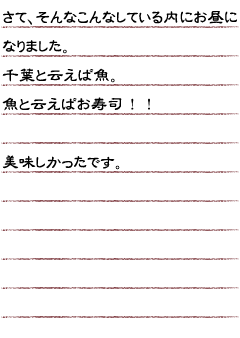 さて、そんなこんなしている内にお昼に
なりました。
千葉と云えば魚。
魚と云えばお寿司！！
美味しかったです。